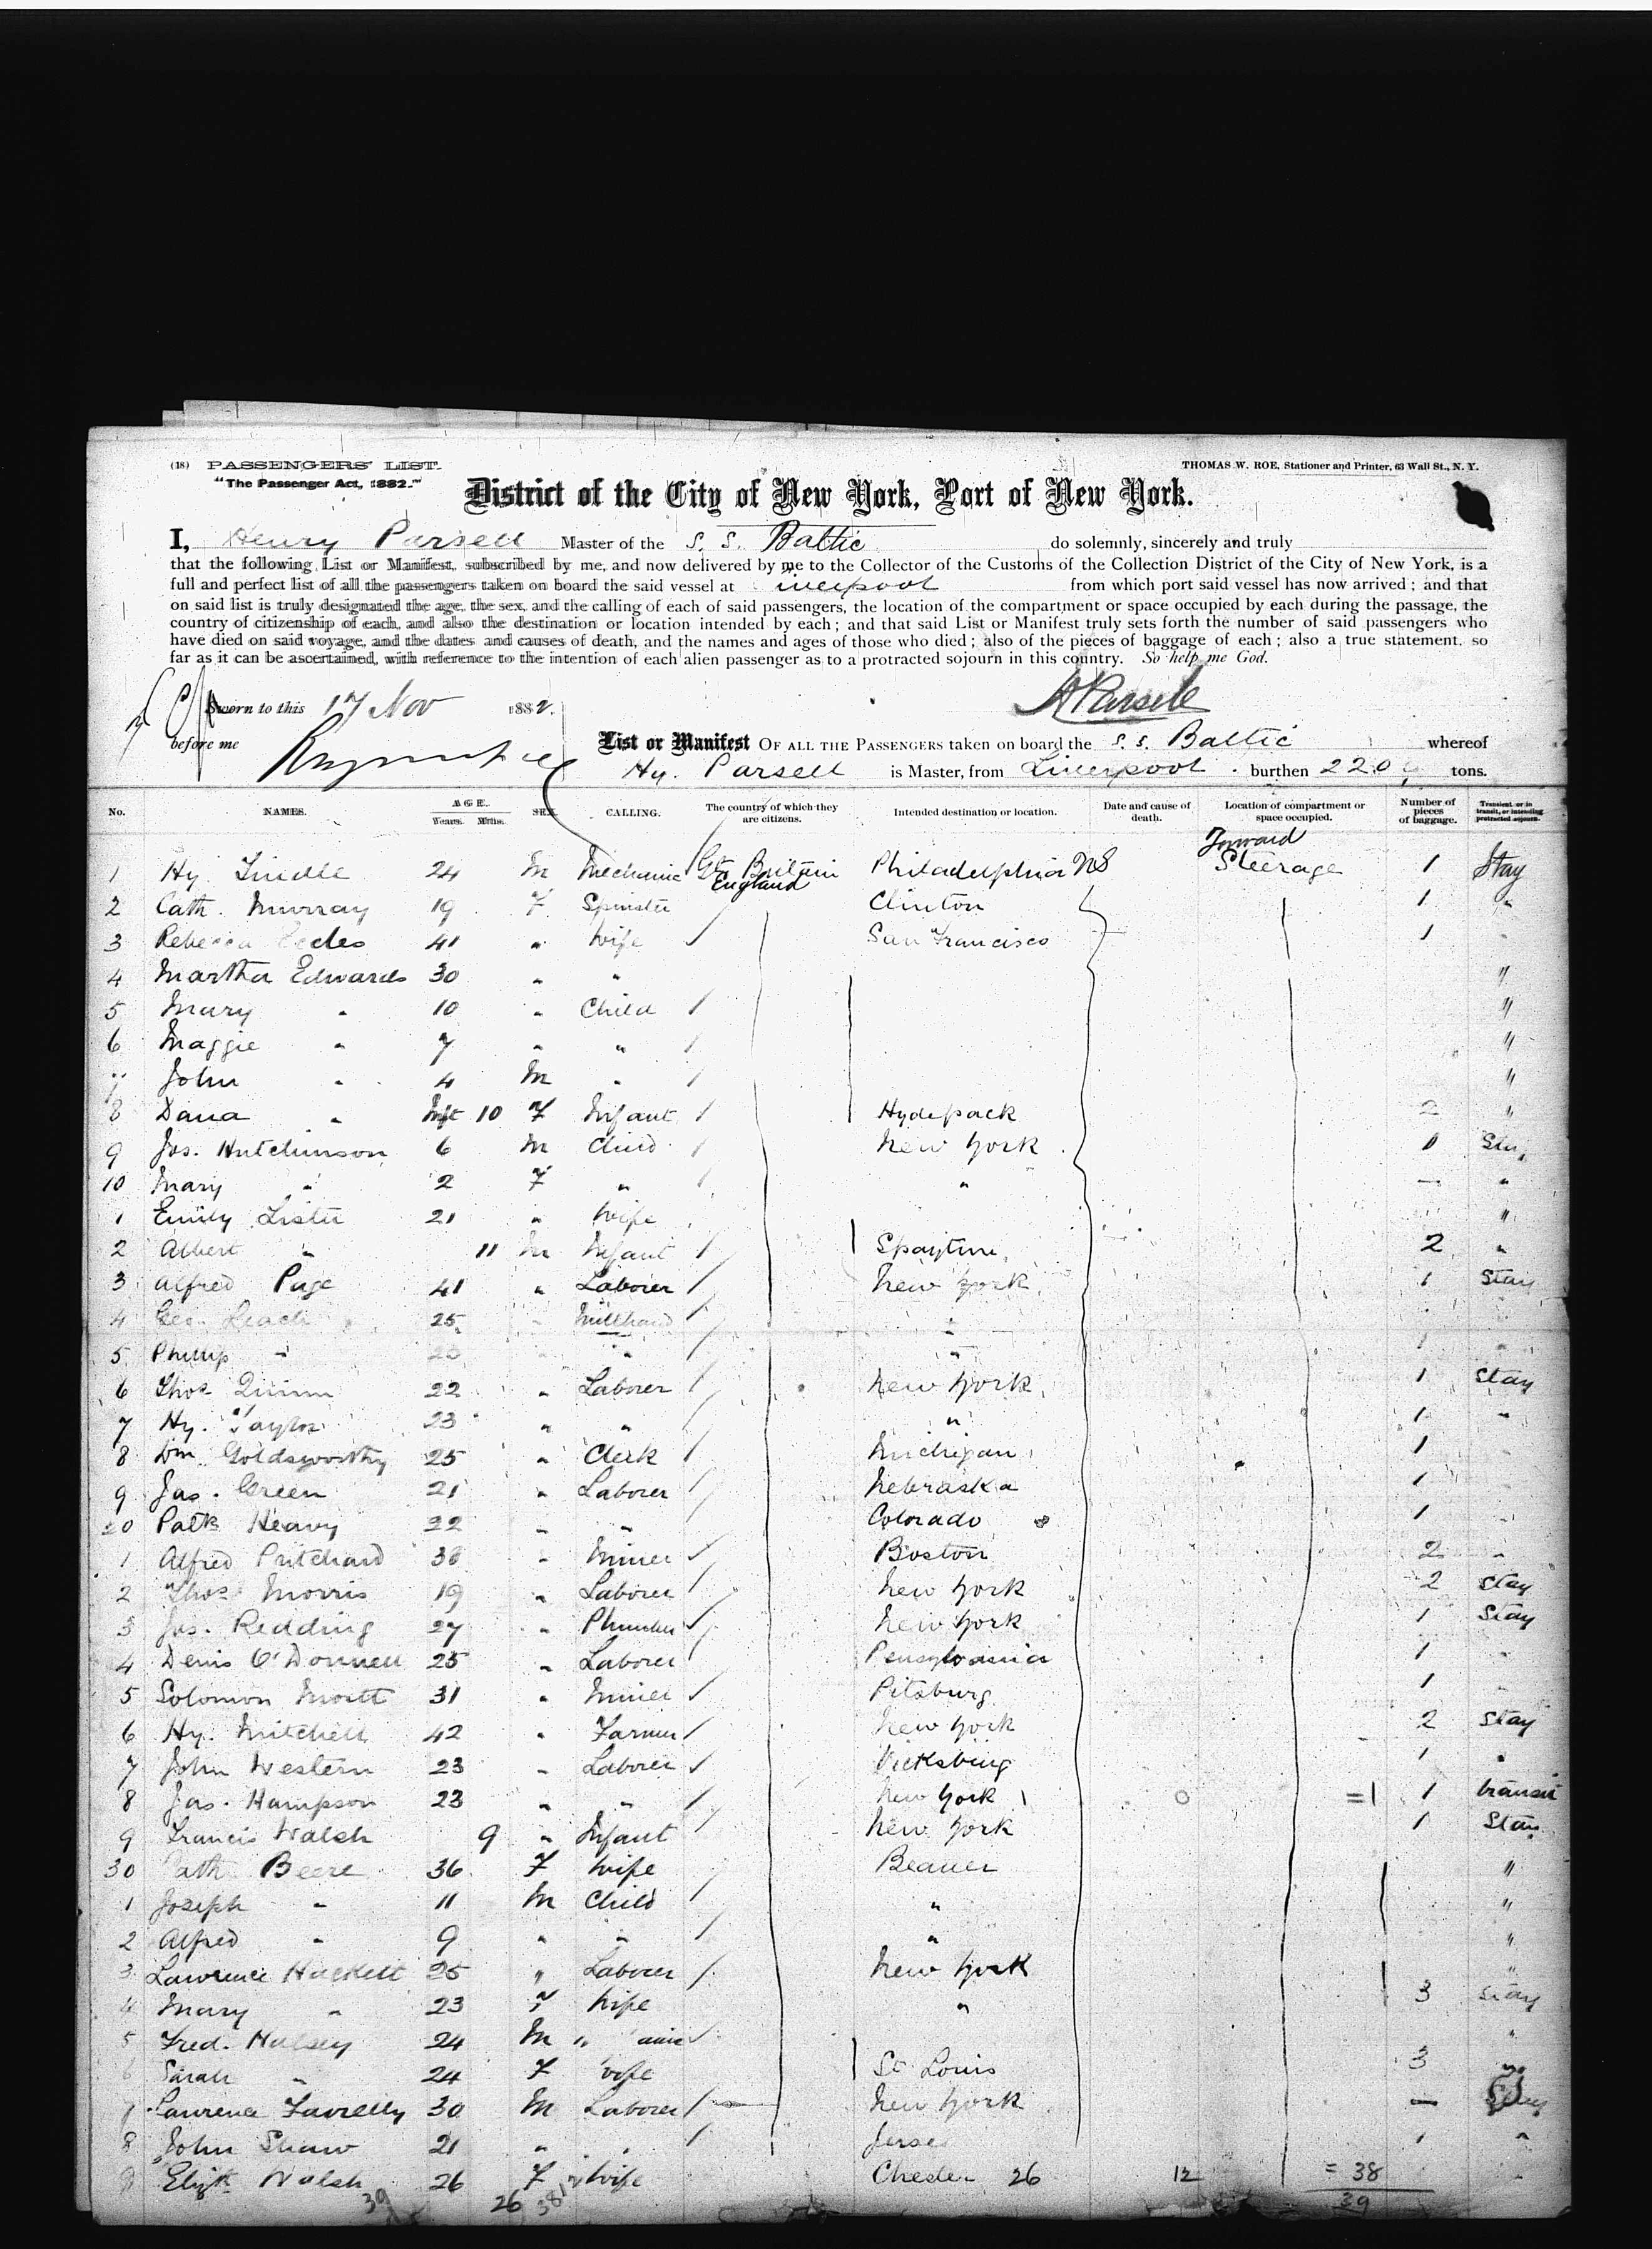 (18) PASSENGERS' LIST. THOMAS W. ROE, Stationer and Printer, 63 Wall St., N. Y.
"The Passenger Act, 1882."
District of the City of New York, Port of New York.
I, Henry Parsell Master of the S. S. Baltic do solemnly, sincerely and truly
that the following List or Manifest, subscribed by me, and now delivered by me to the Collector of the Customs of the Collection District of the City of New York, is a
full and perfect list of all the passengers taken on board the said vessel at Liverpool from which port said vessel has now arrived; and that
on said list is truly designated the age, the sex, and the calling of each of said passengers, the location of the compartment or space occupied by each during the passage, the
country of citizenship of each, and also the destination or location intended by each; and that said List or Manifest truly sets forth the number of said passengers who
have died on said voyage, and the dates and causes of death, and the names and ages of those who died; also of the pieces of baggage of each; also a true statement. so
far as it can be ascertained, with reference to the intention of each alien passenger as to a protracted sojourn in this country. So help me God.
Sworn to this 17 Nov 1882. HParsell
before me List or Manifest OF ALL THE PASSENGERS taken on board the S. S. Baltic whereof
Hy. Parsell is Master, from Liverpool. burthen 2209 tons.
No. NAMES. AGE. Years. Mths. SEX. CALLING. The country of which they are citizens. Intended destination or location. Date and cause of death. Location of compartment or space occupied. Number of pieces of baggage. Transient or in transit, or intending protracted sojourn.
Forward
1 Hy. 24 M Mechanic Gt Britain Philadelphia Steerage 1 Stay
England
2 Cath. Murray 19 F Spinster Clinton 1 "
3 Rebecca Eccles 41 " Wife San Francisco 1
4 Martha Edwards 30 " " "
5 Mary " 10 " Child "
6 Maggie " 7 " " "
7 John " 4 M " "
8 " Inft 10 F Infant Hydepark 2 "
9 Jos. Hutchinson 6 M Child New York 1 Stay
10 Mary " 2 F " " — "
1 Emily Lister 21 " Wife "
2 Albert " 11 M Infant 2 "
3 Alfred Page 41 " Laborer New York 1 Stay
4 Geo. Leach 25 " Millhand "
5 Phillip " " " 1 "
6 Thos Quinn 22 " Laborer New York 1 Stay
7 Hy. Taylor 23 " " " 1 "
8 Wm. Goldsworthy 25 " Clerk Michigan 1
9 Jas. Green 21 " Laborer Nebraska 1
20 Patk Heavy 22 " " Colorado 1
1 Alfred Pritchard " Miner Boston 2 "
2 Thos Morris 19 " Laborer New York 2 Stay
3 Jas. Redding 27 " Plumber New York 1 Stay
4 Denis O'Donnell 25 " Laborer Pensylvania 1 "
5 Solomon 31 " Miner Pitsburg 1
6 Hy. Mitchell 42 " Farmer New York 2 Stay
7 John Western 23 " Laborer Vicksburg 1 "
8 Jas. Hampson 23 " " New York =1 1 transit
9 Francis Walsh 9 " Infant New York 1 Stay
30 Cath Beere 36 F Wife Beaver "
1 Joseph " 11 M Child " "
2 Alfred " 9 " " " "
3 Lawrence Hackett 25 " Laborer New York "
4 Mary " 23 F Wife " 3 Stay
5 Fred. Halsey 24 M "
6 Sarah " 24 F Wife St Louis 3
7 Laurence 30 M Laborer New York — Stay
8 John Shaw 21 " " 1 "
9 Elizth Walsh 26 F Wife Chester 26 12 = 38
39 26 38 39